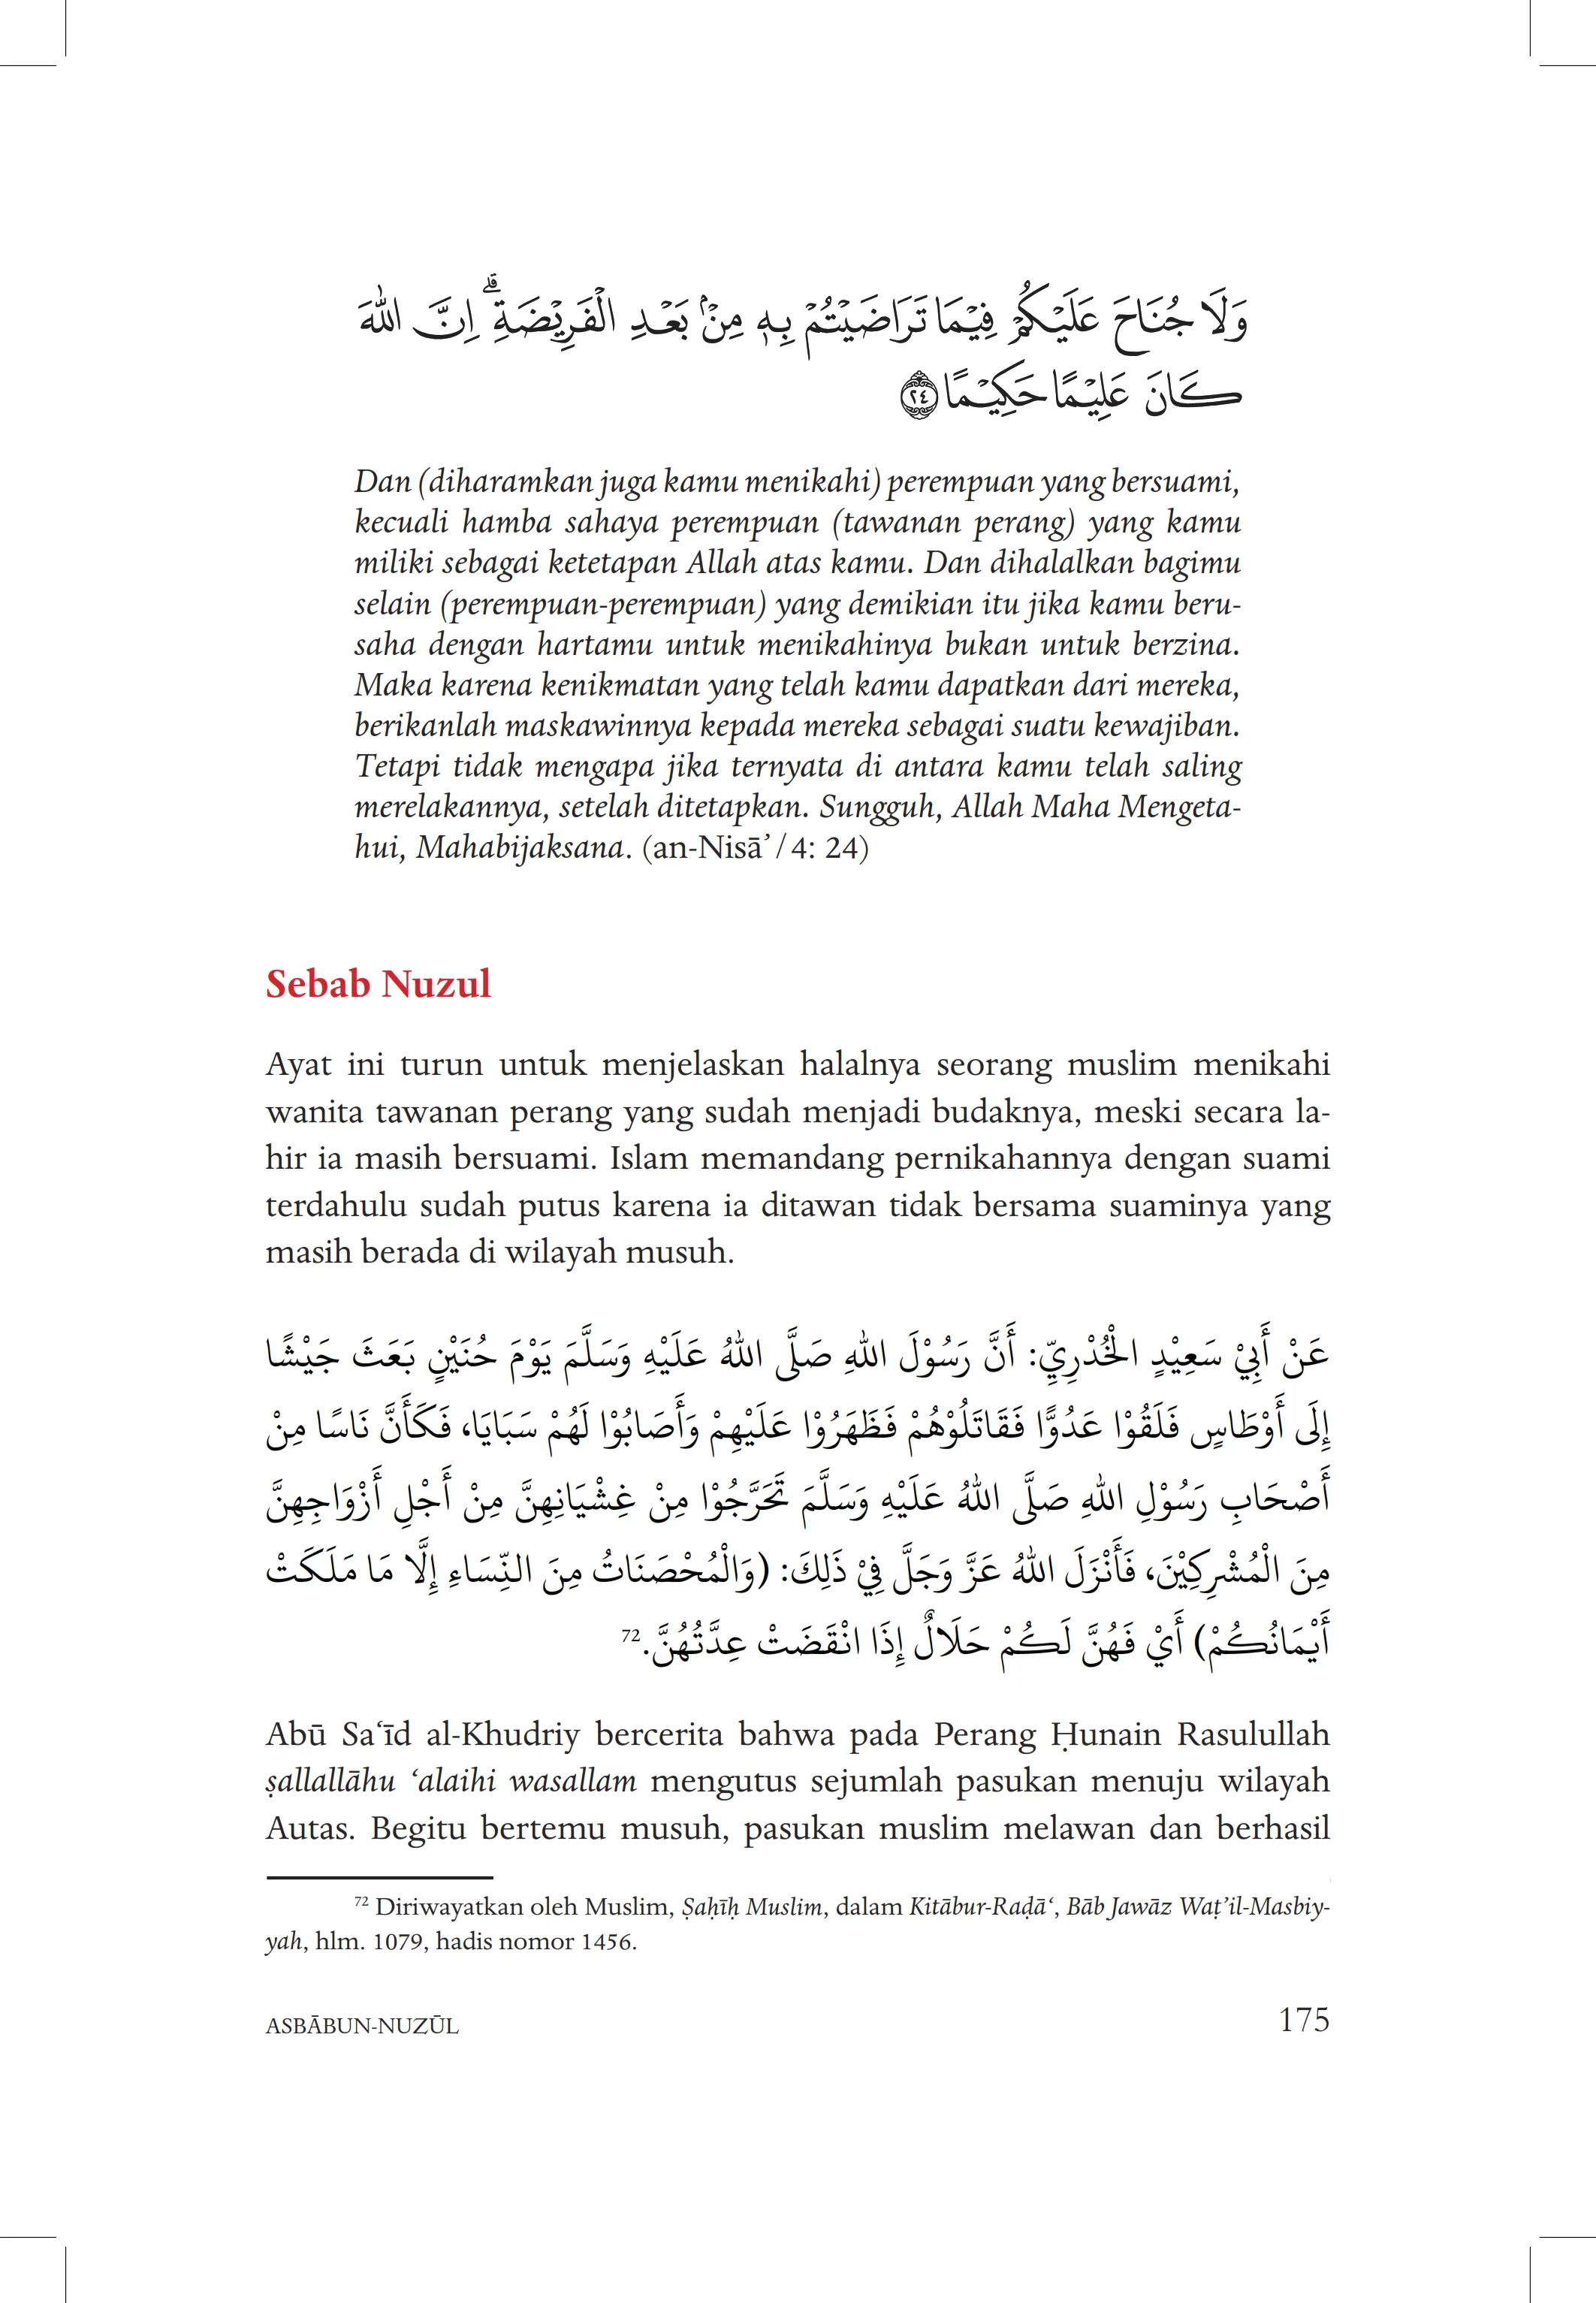 وَلَا جُنَاحَ عَلَيْكُمْ فِيْمَا تَرَاضَيْتُمْ بِهٖ مِنْۢ بَعْدِ الْفَرِيْضَةِۗ اِنَّ اللّٰهَ
كَانَ عَلِيْمًا حَكِيْمًا ٢٤
Dan (diharamkan juga kamu menikahi) perempuan yang bersuami,
kecuali hamba sahaya perempuan (tawanan perang) yang kamu
miliki sebagai ketetapan Allah atas kamu. Dan dihalalkan bagimu
selain (perempuan-perempuan) yang demikian itu jika kamu beru-
saha dengan hartamu untuk menikahinya bukan untuk berzina.
Maka karena kenikmatan yang telah kamu dapatkan dari mereka,
berikanlah maskawinnya kepada mereka sebagai suatu kewajiban.
Tetapi tidak mengapa jika ternyata di antara kamu telah saling
merelakannya, setelah ditetapkan. Sungguh, Allah Maha Mengeta-
hui, Mahabijaksana. (an-Nisā’/4: 24)
Sebab Nuzul
Ayat ini turun untuk menjelaskan halalnya seorang muslim menikahi
wanita tawanan perang yang sudah menjadi budaknya, meski secara la-
hir ia masih bersuami. Islam memandang pernikahannya dengan suami
terdahulu sudah putus karena ia ditawan tidak bersama suaminya yang
masih berada di wilayah musuh.
عَنْ أَبِيْ سَعِيْدٍ الْخُدْرِيِّ: أَنَّ رَسُوْلَ اللهِ صَلَّى اللهُ عَلَيْهِ وَسَلَّمَ يَوْمَ حُنَيْنٍ بَعَثَ جَيْشًا
إِلَى أَوْطَاسٍ فَلَقُوْا عَدُوًّا فَقَاتَلُوْهُمْ فَظَهَرُوْا عَلَيْهِمْ وَأَصَابُوْا لَهُمْ سَبَايَا، فَكَأَنَّ نَاسًا مِنْ
أَصْحَابِ رَسُوْلِ اللهِ صَلَّى اللهُ عَلَيْهِ وَسَلَّمَ تَحَرَّجُوْا مِنْ غِشْيَانِهِنَّ مِنْ أَجْلِ أَزْوَاجِهِنَّ
مِنَ الْمُشْرِكِيْنَ، فَأَنْزَلَ اللهُ عَزَّ وَجَلَّ فِيْ ذَلِكَ: (وَالْمُحْصَنَاتُ مِنَ النِّسَاءِ إِلَّا مَا مَلَكَتْ
أَيْمَانُكُمْ) أَيْ فَهُنَّ لَكُمْ حَلَالٌ إِذَا انْقَضَتْ عِدَّتُهُنَّ.72
Abū Sa‘īd al-Khudriy bercerita bahwa pada Perang Ḥunain Rasulullah
ṣallallāhu ‘alaihi wasallam mengutus sejumlah pasukan menuju wilayah
Autas. Begitu bertemu musuh, pasukan muslim melawan dan berhasil
72 Diriwayatkan oleh Muslim, Ṣaḥīḥ Muslim, dalam Kitābur-Raḍā‘, Bāb Jawāz Waṭ’il-Masbiy-
yah, hlm. 1079, hadis nomor 1456.
ASBĀBUN-NUZŪL 175